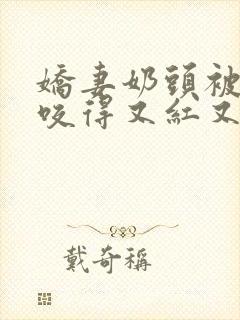 嬌妻奶頭被
咬得又紅又
戴奇稱